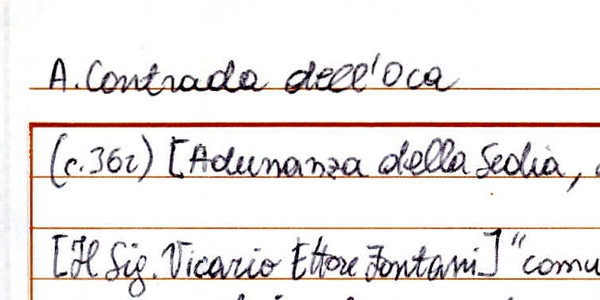 A. Contrada dell'Oca
(c.36r) [Adunanza della Sedia,
[Il Sig. Vicario Ettore Fontani] "comu